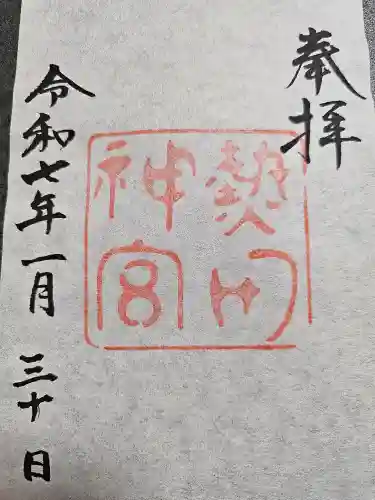 奉拝
熱田
神宮
令和七年一月三十日